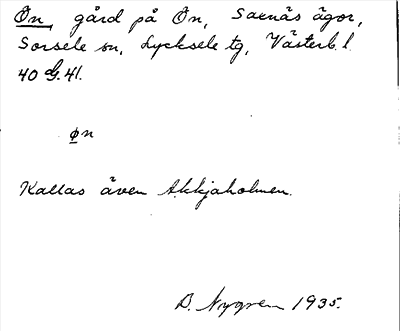 Ön, gård på Ön, Saxnäs ägor,
Sorsele sn, Lycksele tg, Västerb. l.
40 G. 41.
øn
Kallas även Akkjaholmen.
D. Nygren 1935.